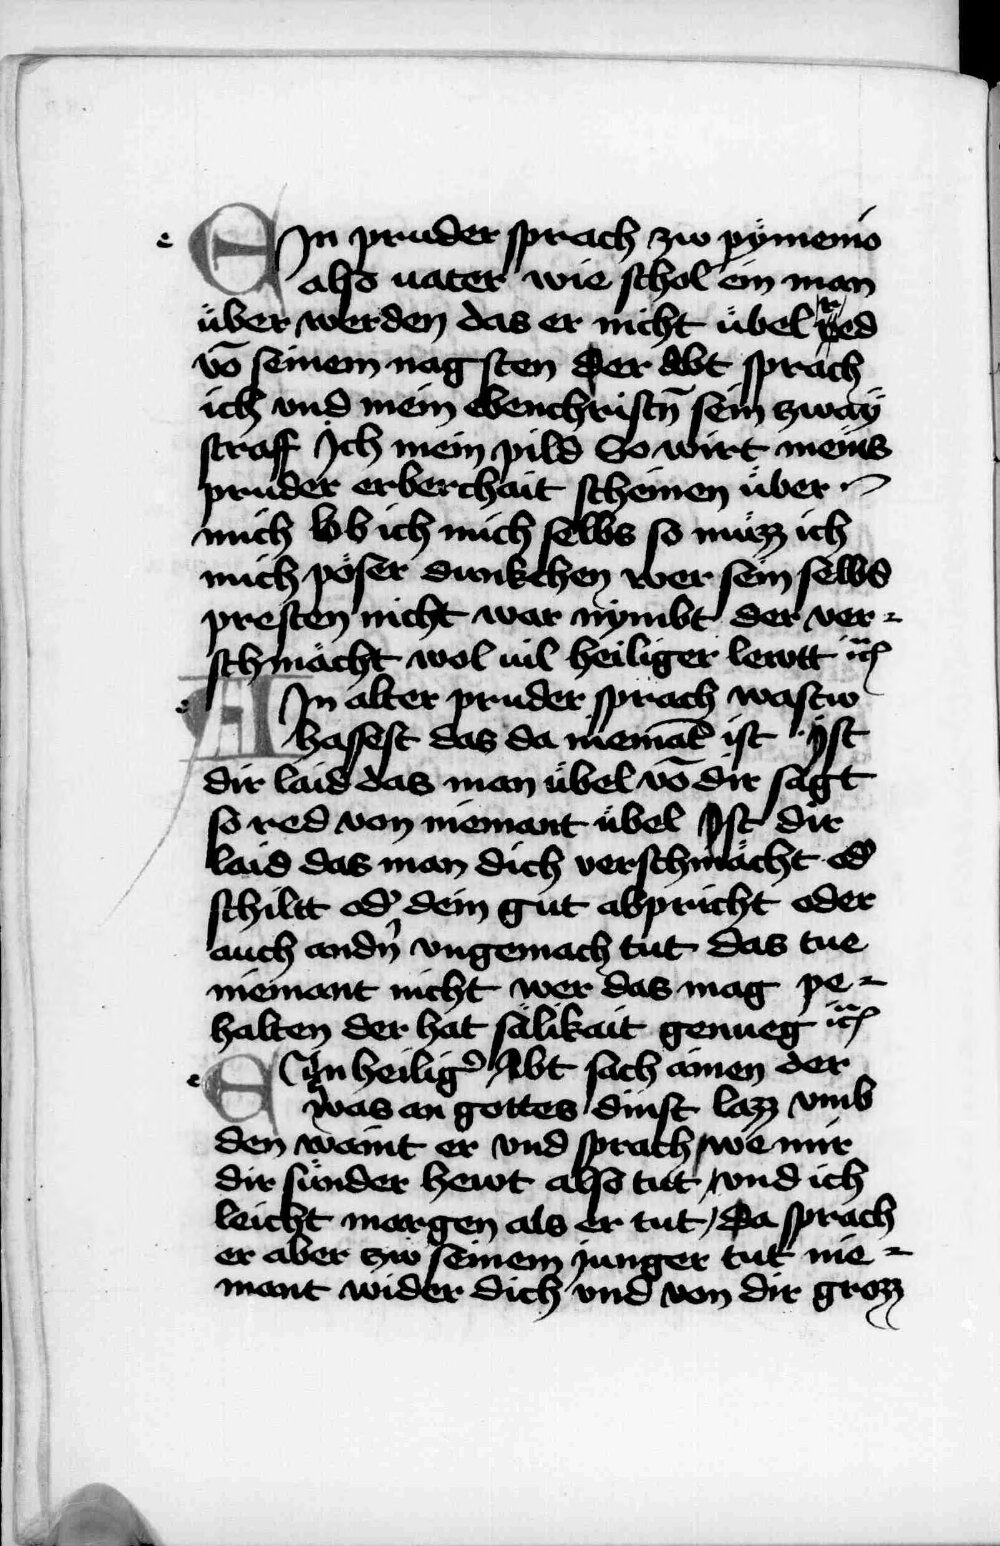 e EIn pruder sprach zw pÿmenio
also uater wie schol ein man
über werden das er nicht übel red
vō seinem nagsten Der Abt sprach
ich vnd mein ebenchristn̄ sein zwaÿ
straff Ich mein pild So wirt meins
pruder erberchait scheinen über
mich lob ich mich selbs so müzz ich
mich pöser dunkchen wer sein selbs
presten nicht war nÿmbt der ver-
schmächt wol uil heiliger lewtt ꝛc̄
e AIn alter pruder sprach wastw
hassest das da niemāt ist Ist
dir laid das man übel vō dir sagt
so red von niemant übel Ist dir
laid das man dich verschmächt od̄
schiltt od̄ dein gut abpricht oder
auch andn̄ vngemach tut das tue
niemant nicht wer das mag pe-
halten der hat sälikait genueg ꝛc̄
e EIn heiliḡ Abt sach ainen der
was an gottes dinst lazz vmb
den waint er vnd sprach/ we mir
dir sünder hewt also tut/ vnd ich
leicht morgen als er tut/ Da sprach
er aber zw seinem junger tut nie-
mant wider dich vnd von dir grozz